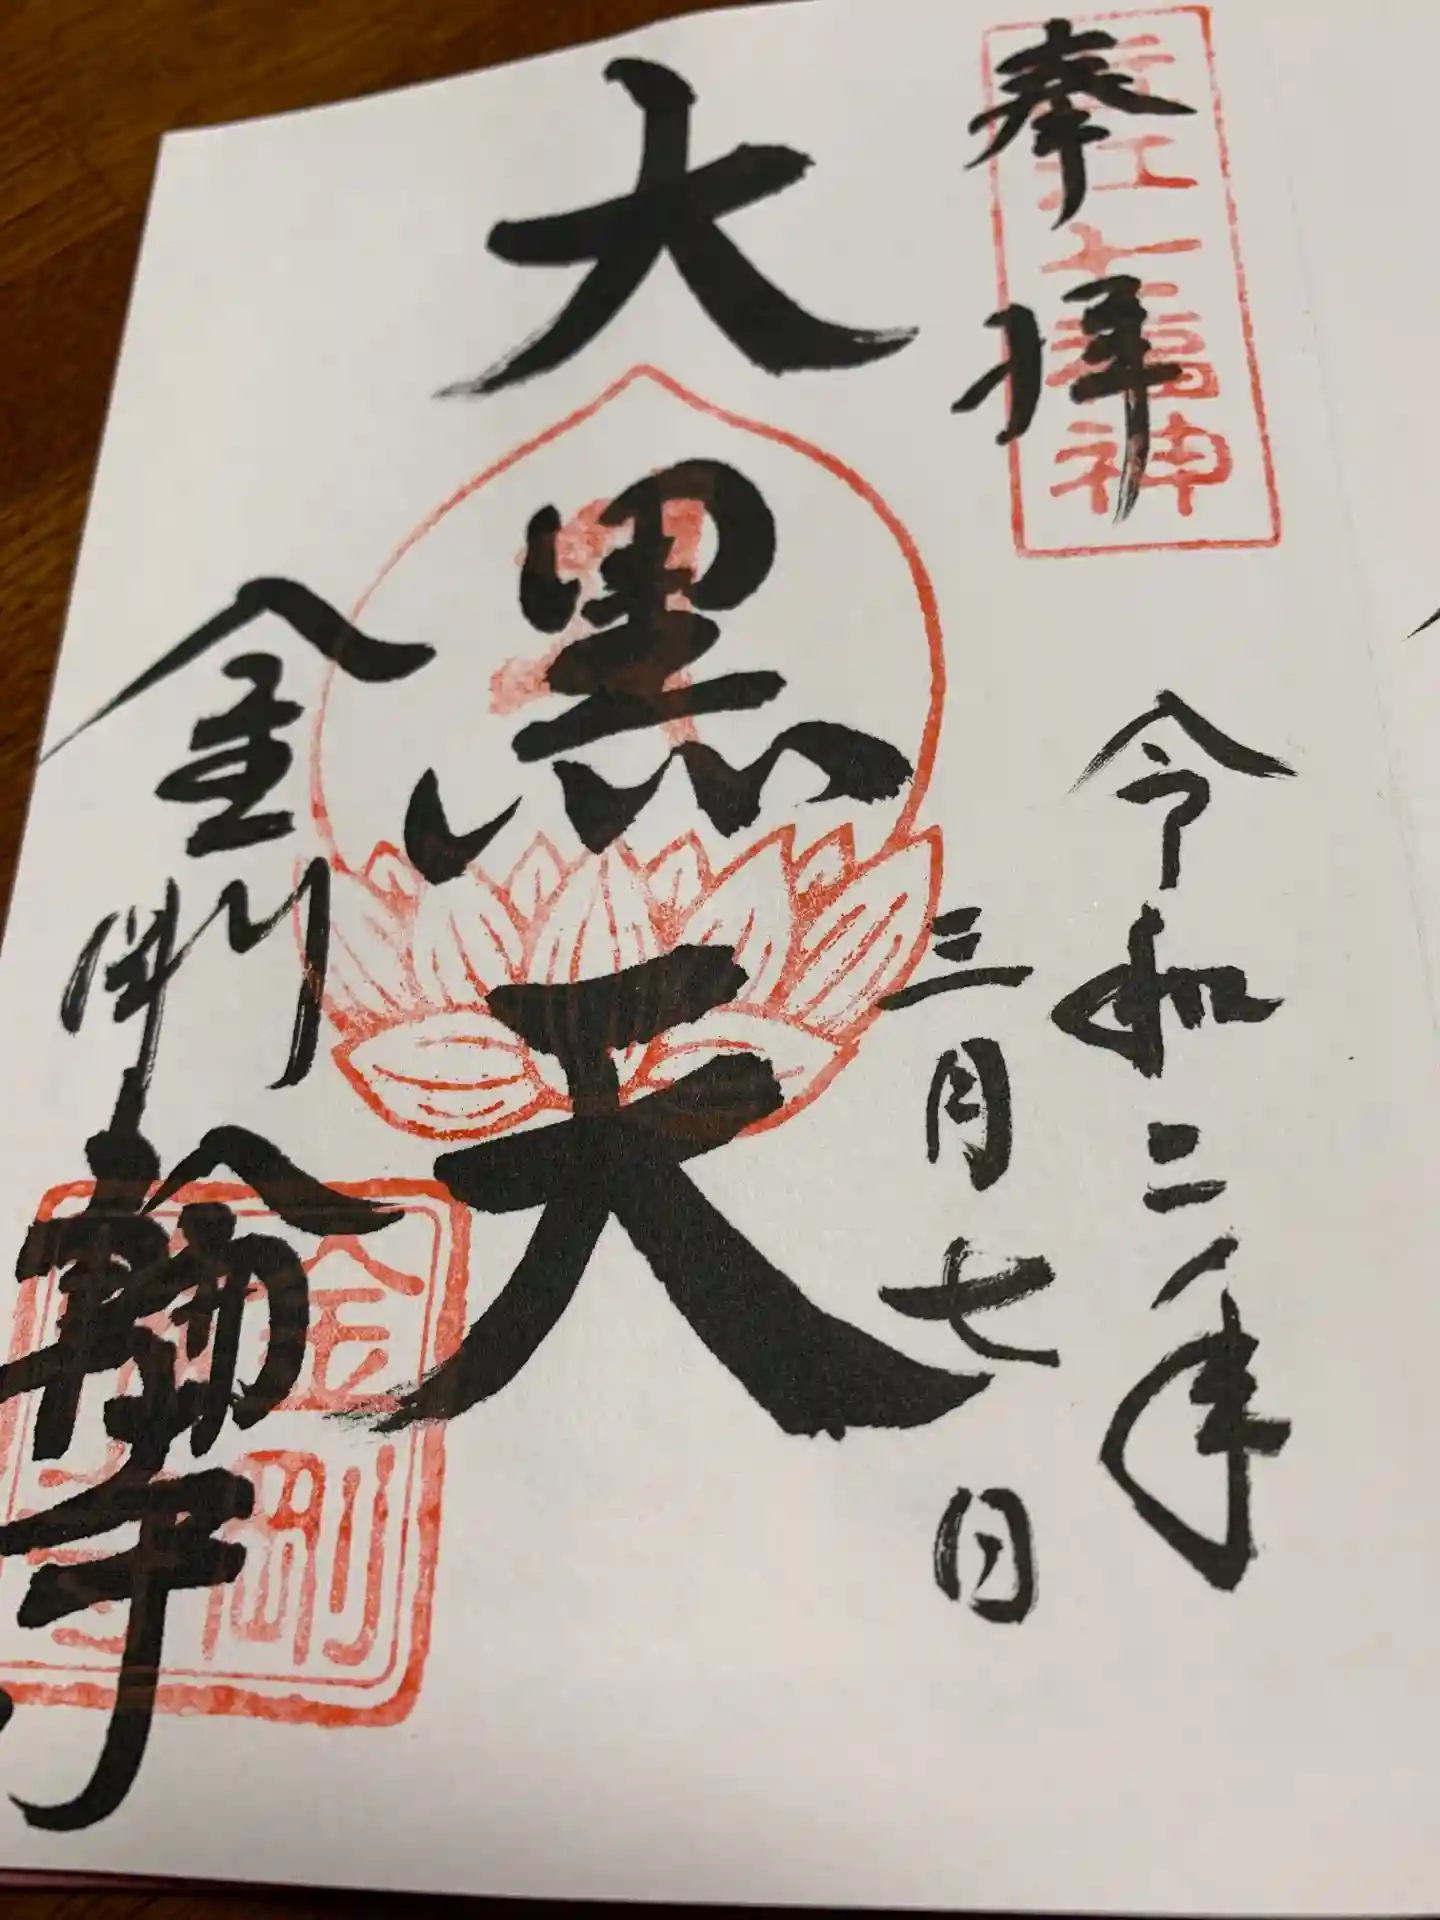 奉拝
近江七福神
令和二年
三月七日
大黒天
金剛輪寺
金剛